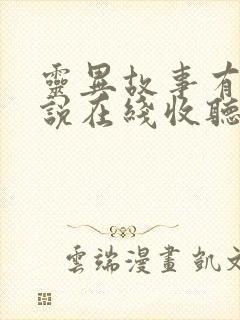 靈異故事有
說在綫收聽
雲端漫畫 凱文